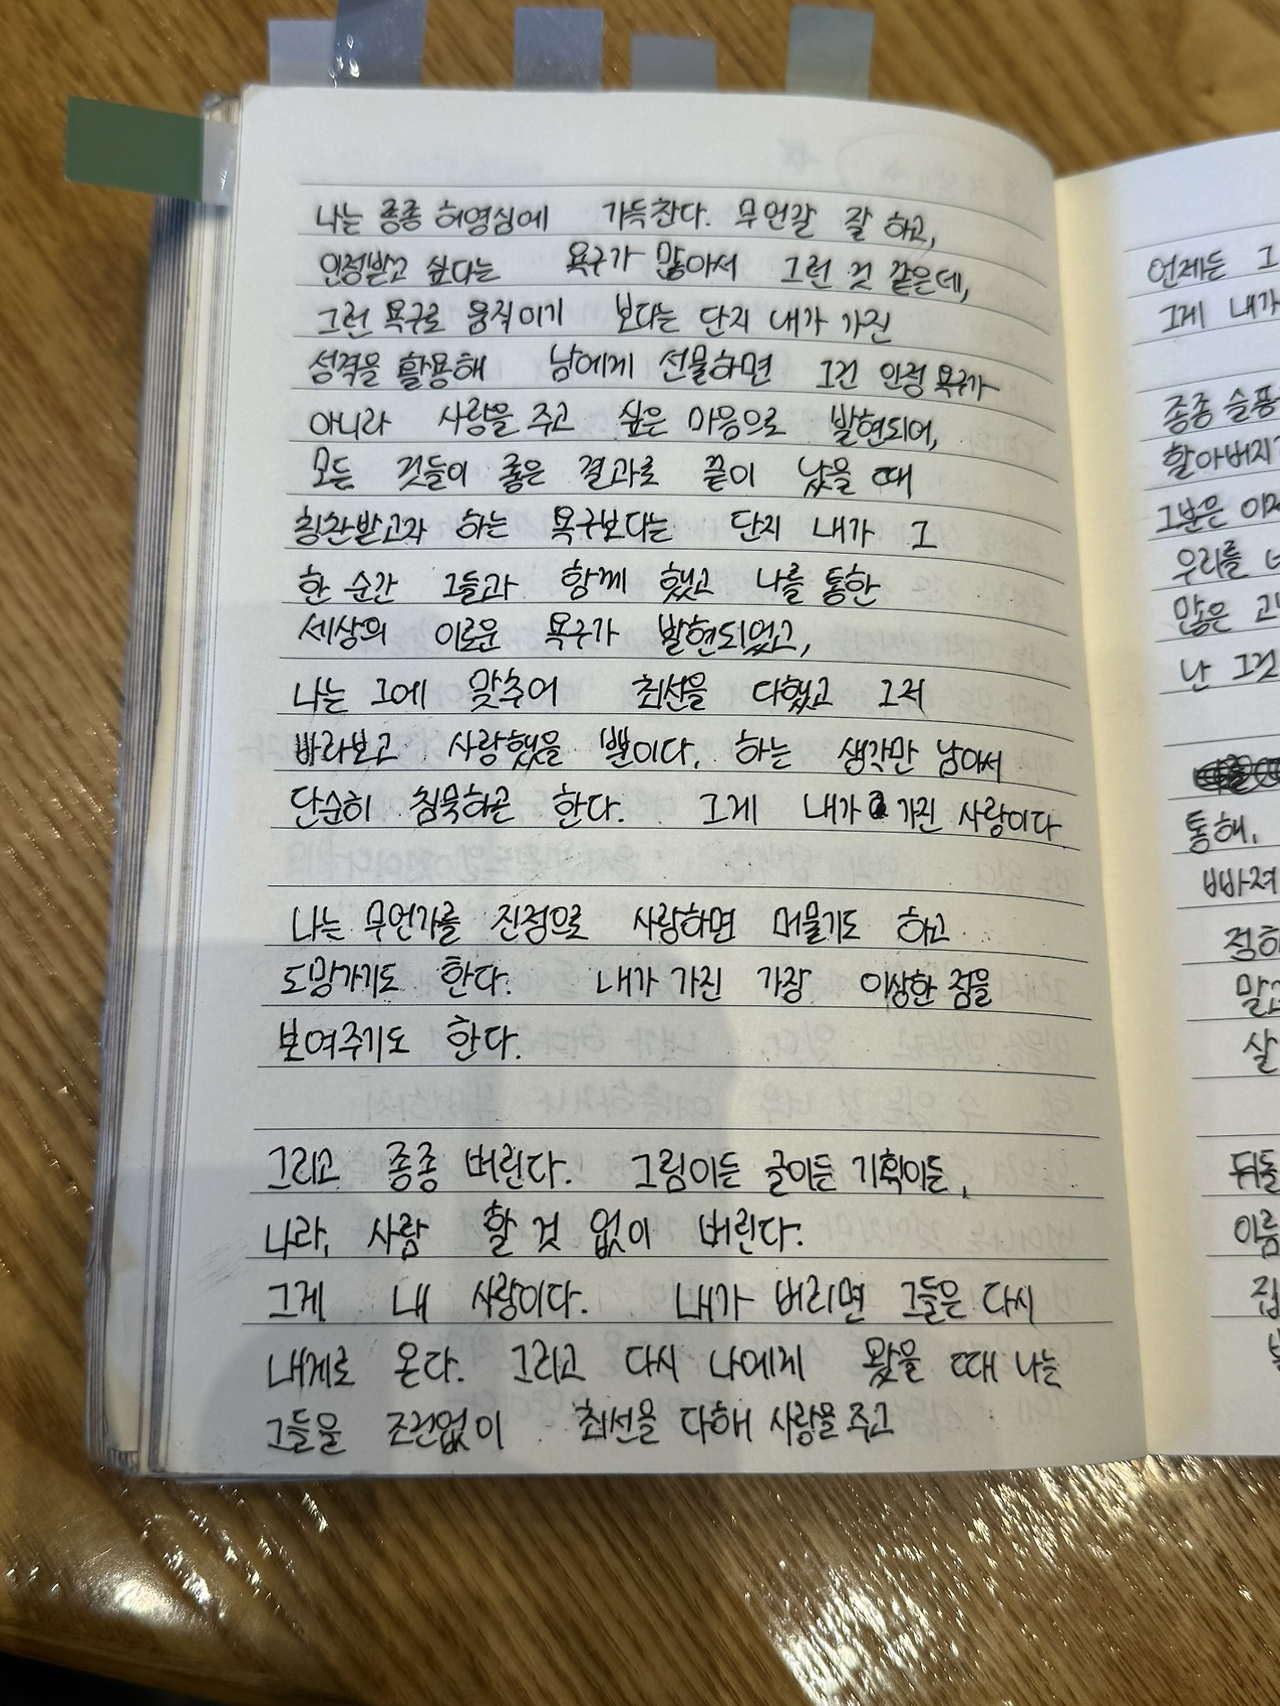 나는 종종 허영심에 가득찬다. 무언갈 잘 하고,
인정받고 싶다는 욕구가 많아서 그런 것 같은데,
그런 욕구로 움직이기 보다는 단지 내가 가진
성격을 활용해 남에게 선물하면 그건 인정 욕구가
아니라 사랑을 주고 싶은 마음으로 발현되어,
모든 것들이 좋은 결과로 끝이 났을 때
칭찬받고자 하는 욕구보다는 단지 내가 그
한 순간 그들과 함께 했고 나를 통한
세상의 이로운 욕구가 발현되었고,
나는 그에 맞추어 최선을 다했고 그저
바라보고 사랑했을 뿐이다, 하는 생각만 남아서
단순히 침묵하곤 한다. 그게 내가 가진 사랑이다.
나는 무언가를 진정으로 사랑하면 머물기도 하고
도망가기도 한다. 내가 가진 가장 이상한 점을
보여주기도 한다.
그리고 종종 버린다. 그림이든 글이든 기획이든,
나라, 사람 할 것 없이 버린다.
그게 내 사랑이다. 내가 버리면 그들은 다시
내게로 온다. 그리고 다시 나에게 왔을 때 나는
그들을 조건없이 최선을 다해 사랑을 주고
언제든 그
그게 내가
종종 슬픔
할아버지
그분은 이제
우리를
많은
난 그것
통해,
빠져
점하
말고
살
뒤돌
이름
집